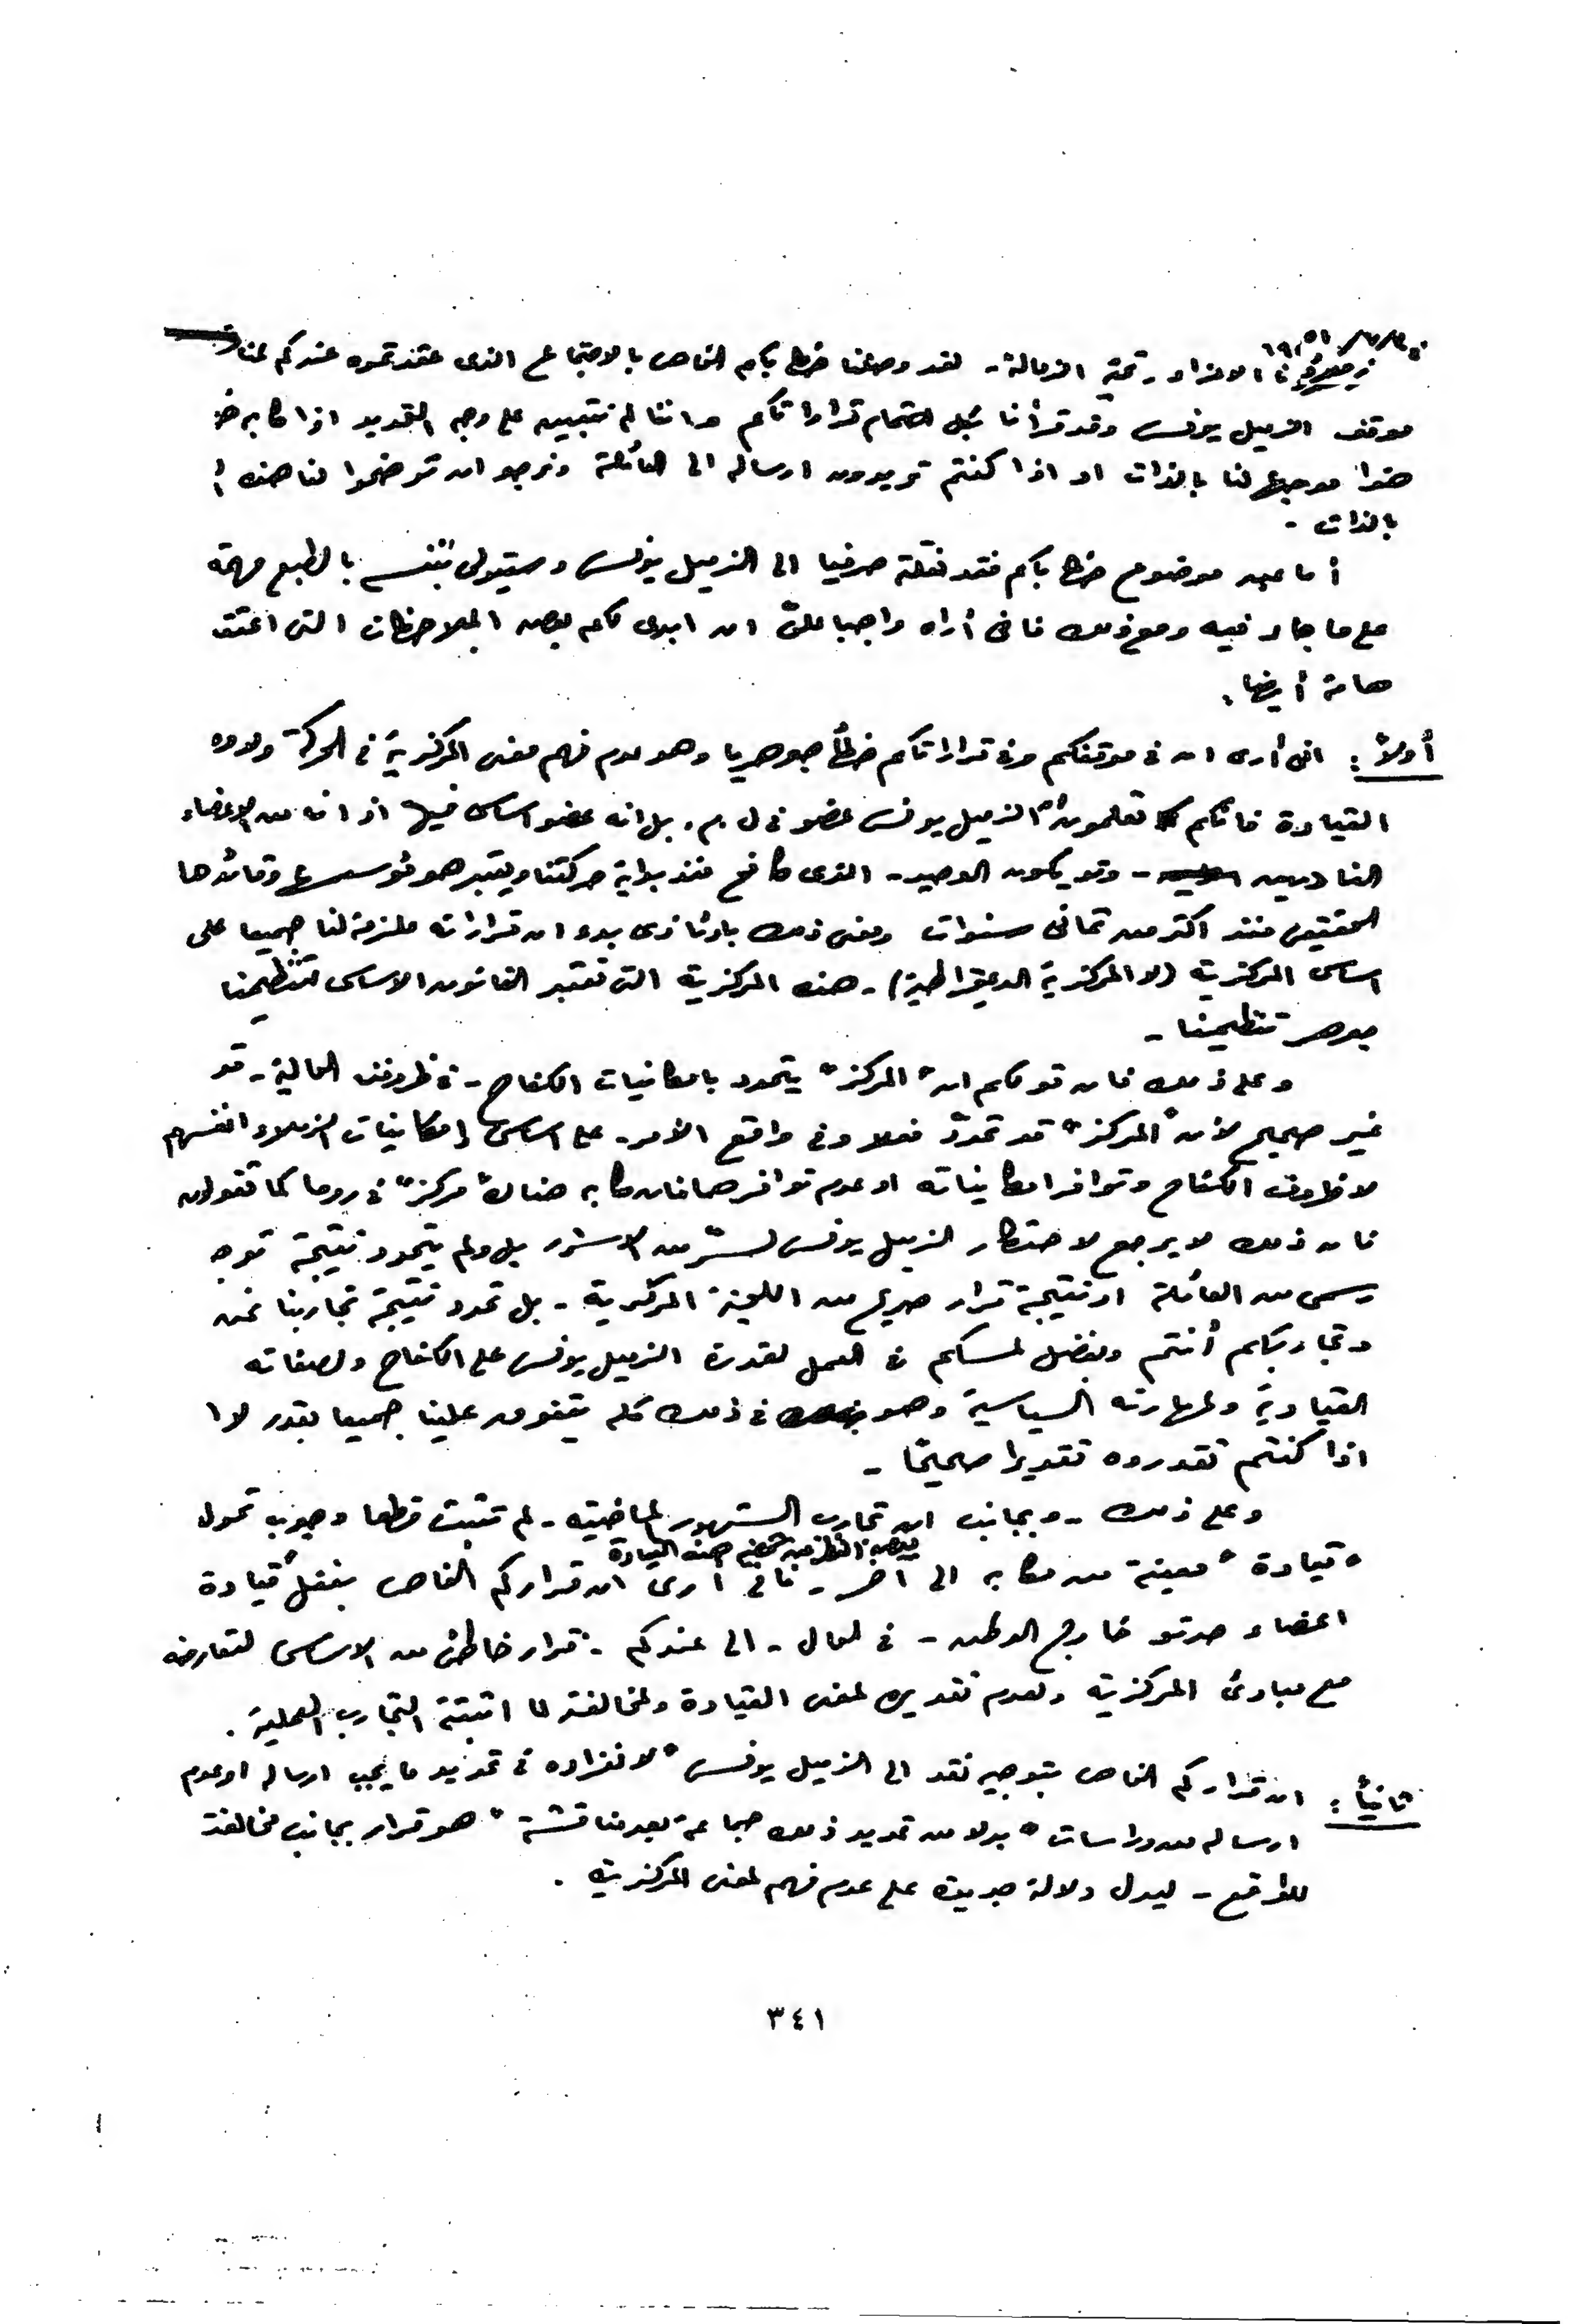 زملاؤنا الاعزاء - تحية الزمالة - لقد وصلنا خطابكم الخاص بالاجتماع الذى عقدتموه عندكم
موقف الزميل يونس وقد قرأنا بكل اهتمام قراراتكم واننا لم نتبين على وجه التحديد اذا كان
هذا موجها لنا بالذات او اذا كنتم تريدون ارساله الى العائلة ونرجو ان توضحوا لنا هذه
بالذات -
أما عن موضوع خطابكم فقد نقلته حرفيا الى الزميل يونس وسيتولى بنفسه بالطبع مهمة
على ما جاء فيه ومع ذلك فانى أراه واجبا علىّ ان ابدى لكم بعض الملاحظات التى اعتقد
هامة أيضا .
أولاً : انى أرى ان فى موقفكم وفى قراراتكم خطأ جوهريا وهو عدم فهم معنى المركزية فى الحركة ولدور
القيادة فانكم تعلمون أن الزميل يونس عضو فى ل . م . بل انه عضو اساسى فيها اذ انه من الاعضاء
النادرين - وقد يكون الوحيد - الذى كافح منذ بداية حركتنا ويعتبر هو مؤسسها وقائدها
الحقيقى منذ اكثر من ثمانى سنوات ومعنى ذلك بادئ ذى بدء ان قراراته ملزمة لنا جميعا على
اساس المركزية (لا المركزية الديمقراطية) - هذه المركزية التى تعتبر القانون الاساسى لتنظيمنا
جوهر تنظيمنا -
وعلى ذلك فان قولكم ان " المركز " يتحدد بامكانيات الكفاح - فى ظروفنا الحالية - قول
غير صحيح لأن " المركز " قد تحدّد فعلا وفى واقع الأمر - على اساس إمكانيات الزملاء انفسهم
لا ظروف الكفاح وتوافر امكانياته او عدم توافرها فان كان هناك " مركز " فى روما كما تقولون
فان ذلك لا يرجع لاحتكار الزميل يونس لسّر من الاسرار بل ولم يتحدد نتيجة توجيه
رسمى من العائلة او نتيجة قرار صريح من اللجنة المركزية - بل تحدد نتيجة تجاربنا نحن
وتجاربكم أنتم وبفضل لمسكم فى العمل لقدرة الزميل يونس على الكفاح ولصفاته
القيادية ولمهارته السياسية وهو فى ذلك كله يتفوق علينا جميعا بقدر
اذا كنتم تقدروه تقديرا صحيحا -
وعلى ذلك - وبجانب ان تجارب الشهور الماضية - لم تثبت قطعا وجوب تحول
بغض النظر عن شخص هذه القيادة
" قيادة " معينة من مكان الى آخر - فانى أرى ان قراركم الخاص بنقل قيادة
اعضاء حدتو خارج الوطن - فى الحال - الى عندكم - قرار خاطئ من الاساس لتعارضه
مع مبادئ المركزية ولعدم تقديره لمعنى القيادة ولمخالفته لما اثبتته التجارب العملية .
ثانياً : ان قراركم الخاص بتوجيه نقد الى الزميل يونس " لانفراده فى تحديد ما يجب ارساله او عدم
ارساله من دراسات " بدلا من تحديد ذلك جماعة بعد مناقشة " هو قرار بجانب مخالفته
للواقع - ليدل دلالة جديدة على عدم فهم لمعنى المركزية .
٣٤١